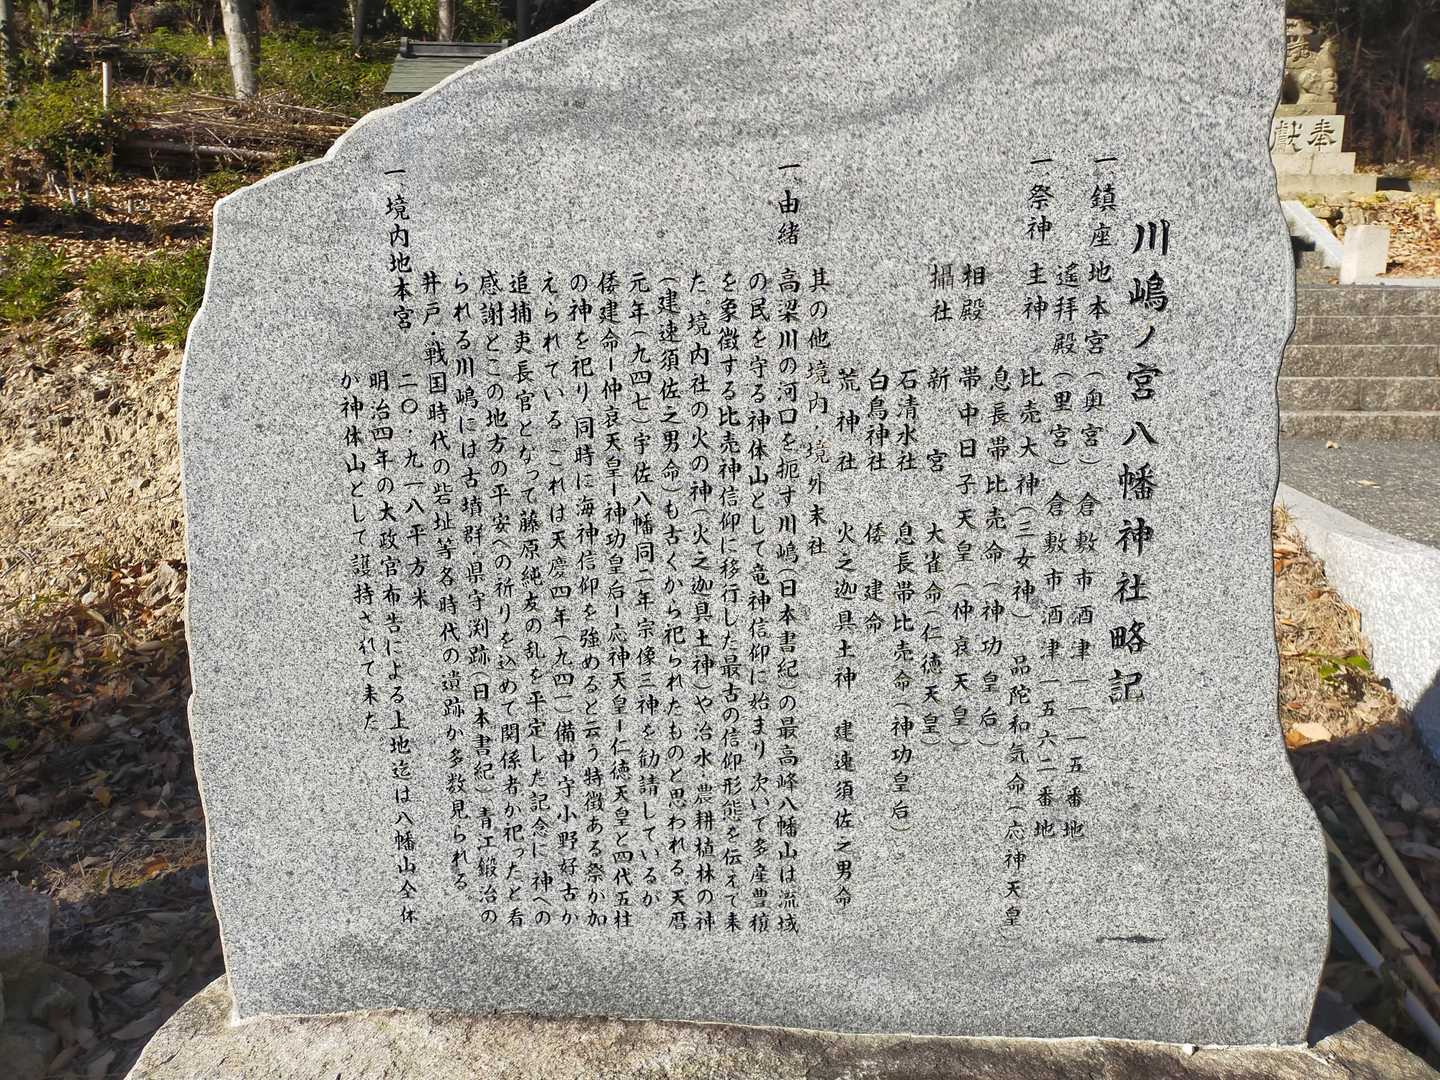 川嶋ノ宮八幡神社略記
一鎮座 地本宮(奥宮) 倉敷市酒津一一一五番地
遙拝殿(里宮) 倉敷市酒津一五六二番地
一祭神 主神 比売大神(三女神) 品陀和気命(応神天皇)
息長帯比売命(神功皇后)
相殿 帯中日子天皇(仲哀天皇)
攝社 新宮 大雀命(仁徳天皇)
石清水社 息長帯比売命(神功皇后)
白鳥神社 倭建命
荒神社 火之迦具土神 建速須佐之男命
其の他境内、境外末社
一由緒 高梁川の河口を扼す川嶋(日本書紀)の最高峰八幡山は流域
の民を守る神体山として竜神信仰に始まり次いで多産豊穣
を象徴する比売神信仰に移行した最古の信仰形態を伝えて来
た。境内社の火の神(火之迦具土神)や治水・農耕植林の神
(建速須佐之男命)も古くから祀られたものと思われる。天暦
元年(九四七)宇佐八幡同二年宗像三神を勧請しているが
倭建命ー仲哀天皇ー神功皇后ー応神天皇ー仁徳天皇と四代五柱
の神を祀り同時に海神信仰を強めると云う特徴ある祭が加
えられている。これは天慶四年(九四一)備中守小野好古が
追捕吏長官となって藤原純友の乱を平定した記念に神への
感謝とこの地方の平安への祈りを込めて関係者が祀ったと看
られる川嶋には古墳群・県守渕跡(日本書紀)青江鍛冶の
井戸・戦国時代の砦址等各時代の遺跡が多数見られる。
一境内地本宮 二〇・九一八平方米
明治四年の太政官布告による上地迄は八幡山全体
が神体山として護持されて来た
奉
献